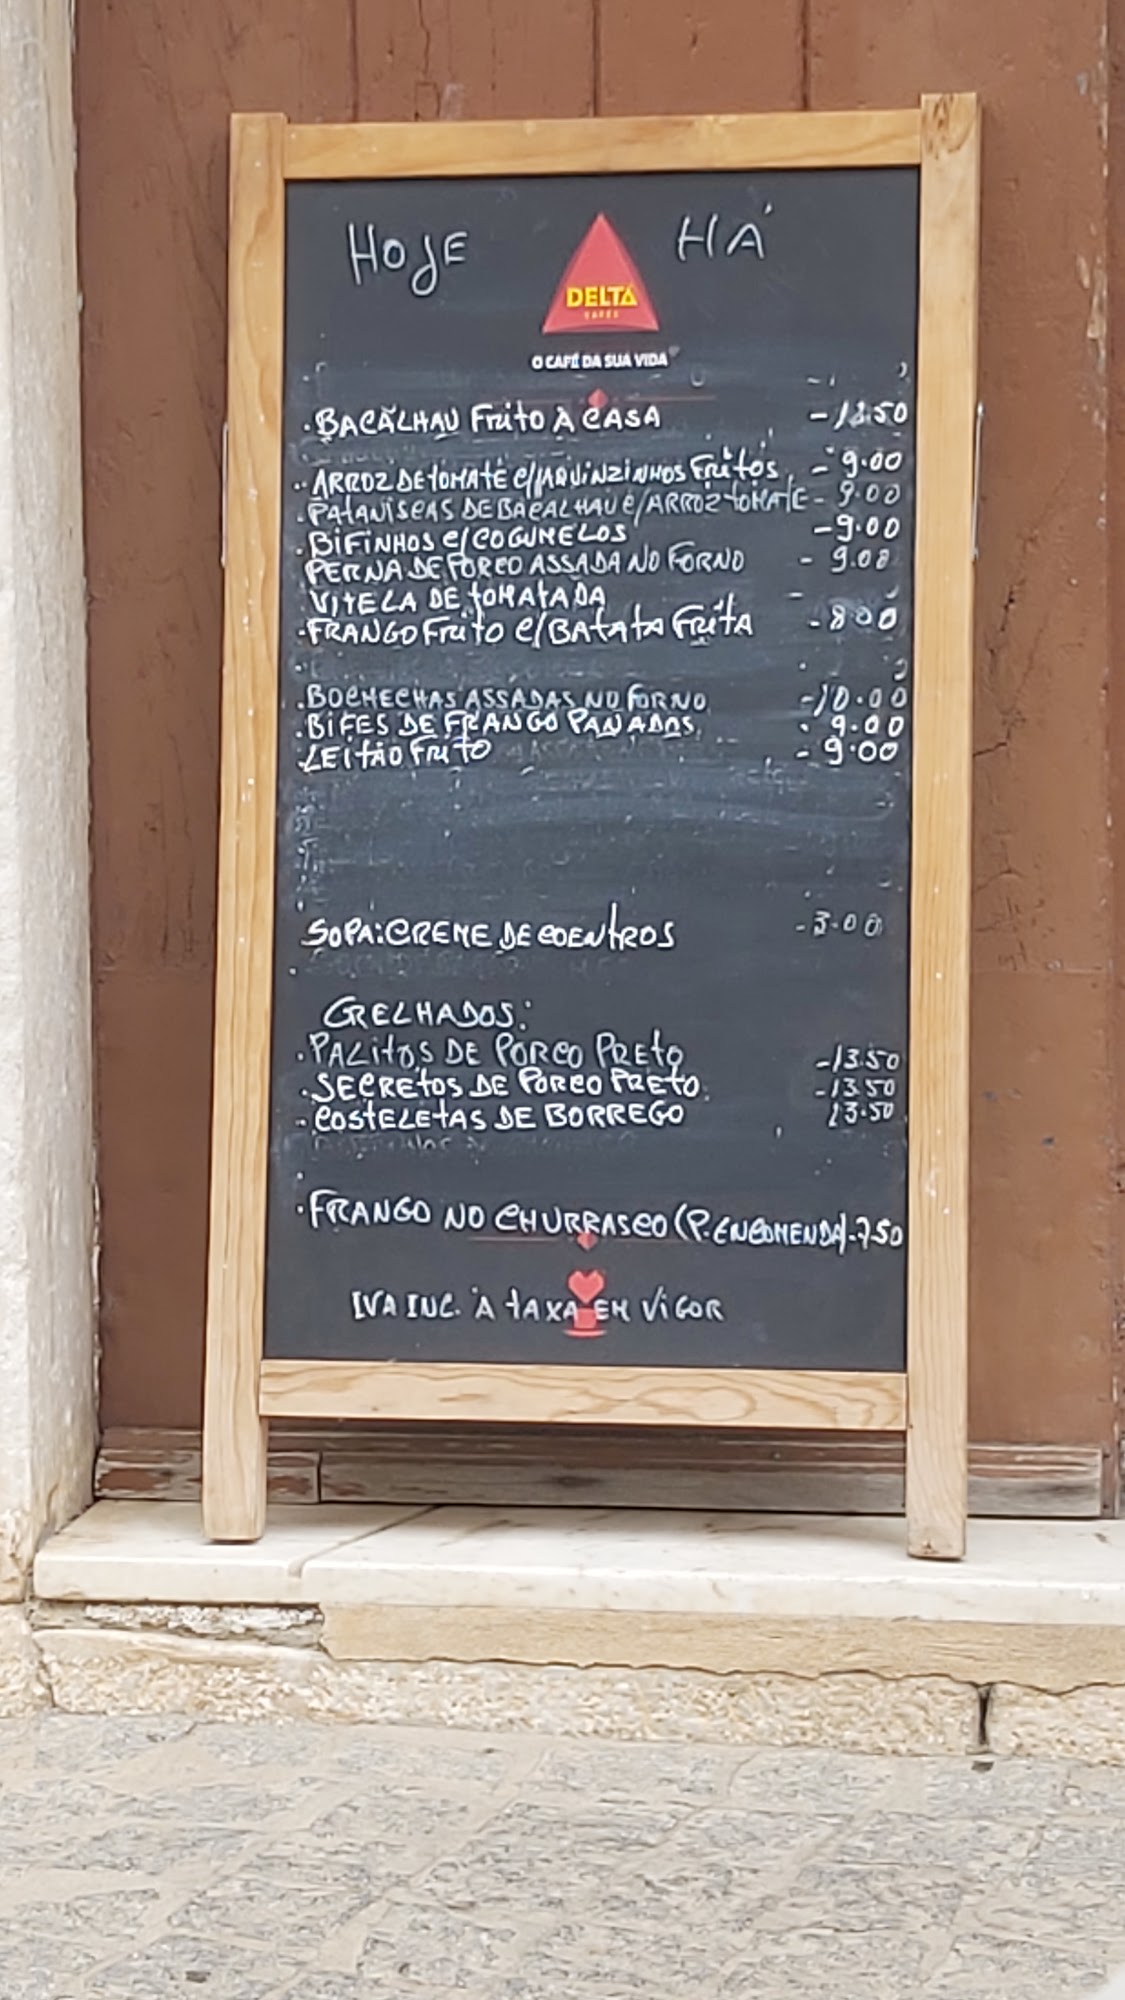 HOJE HÁ
DELTA
CAFÉS
O CAFÉ DA SUA VIDA
. BACALHAU Frito À CASA - 12.50
. ARROZ DE tOMATE C/JAQUINZINHOS Fritos - 9.00
. PATANISCAS DE BACALHAU C/ARROZ tOMATE - 9.00
. BiFiNHOS C/COGUMELOS - 9.00
. PERNA DE PORCO ASSADA NO FORNO - 9.00
. VITELA DE tOMATADA -
. FRANGO Frito C/BAtAtA FRitA - 8.00
. BOCHECHAS ASSADAS NO FORNO - 10.00
. BIFES DE FRANGO PANADOS - 9.00
. LEITÃO Frito - 9.00
SOPA: CREME DE COENtROS - 3.00
GRELHADOS:
. PALitOS DE PORCO PREtO - 13.50
. SECREtOS DE PORCO PREtO. - 13.50
- COStELEtAS DE BORREGO 13.50
. FRANGO NO CHURRASCO (P. ENCOMENDA) - 7.50
IVA INC. À tAXA EM ViGOR